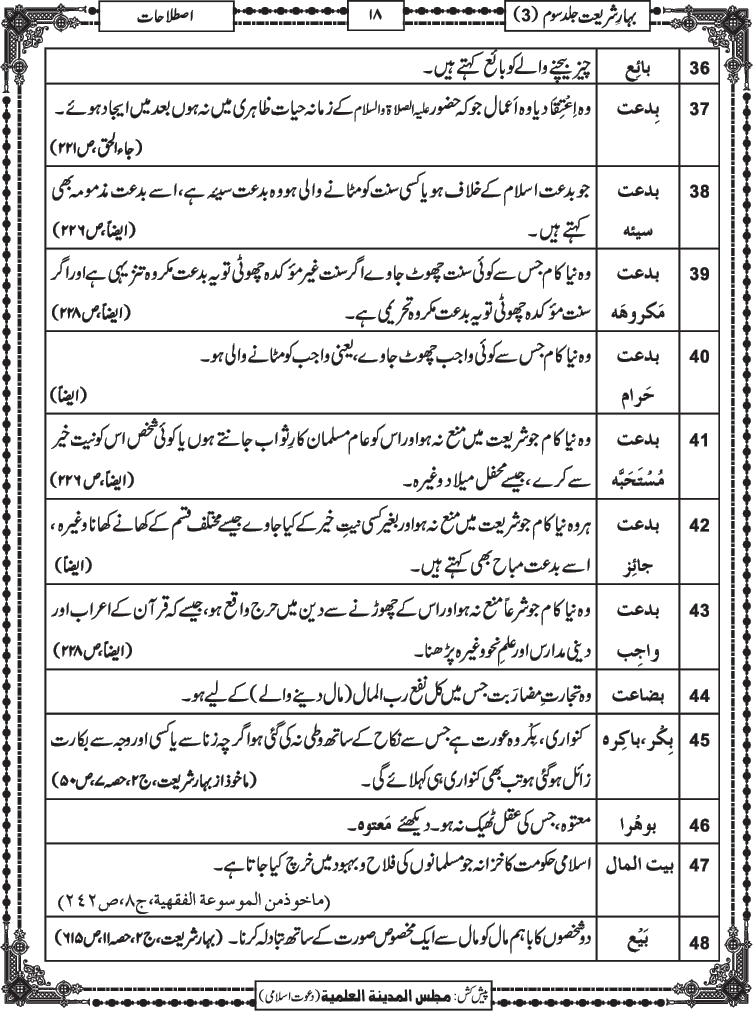 بہارِشریعت جلد سوم (3)
۱۸
اصطلاحات
36 بائِع چیز بیچنے والے کو بائع کہتے ہیں۔
37 بِدعت وہ اِعْتِقاد یا وہ اَعمال جو کہ حضور علیہ الصلاۃ والسلام کے زمانہ حیات ظاہری میں نہ ہوں بعد میں ایجاد ہوئے۔
(جاء الحق، ص۲۲۱)
38 بدعت جو بدعت اسلام کے خلاف ہو یا کسی سنت کو مٹانے والی ہو وہ بدعت سیئہ ہے، اسے بدعت مذمومہ بھی
سیئه کہتے ہیں۔ (ایضاً، ص۲۲۶)
39 بدعت وہ نیا کام جس سے کوئی سنت چھوٹ جاوے اگر سنت غیر مؤکدہ چھوٹی تو یہ بدعت مکروہ تنزیہی ہے اور اگر
مَکروهَه سنت مؤکدہ چھوٹی تو یہ بدعت مکروہ تحریمی ہے۔ (ایضاً، ص۲۲۸)
40 بدعت وہ نیا کام جس سے کوئی واجب چھوٹ جاوے، یعنی واجب کو مٹانے والی ہو۔
حَرام (ایضاً)
41 بدعت وہ نیا کام جو شریعت میں منع نہ ہو اور اس کو عام مسلمان کارِ ثواب جانتے ہوں یا کوئی شخص اس کو نیت خیر
مُسْتَحَبَّه سے کرے، جیسے محفل میلاد وغیرہ۔ (ایضاً، ص۲۲۶)
42 بدعت ہر وہ نیا کام جو شریعت میں منع نہ ہو اور بغیر کسی نیتِ خیر کے کیا جاوے جیسے مختلف قسم کے کھانے کھانا وغیرہ،
جائِز اسے بدعت مباح بھی کہتے ہیں۔ (ایضاً)
43 بدعت وہ نیا کام جو شرعاً منع نہ ہو اور اس کے چھوڑنے سے دین میں حرج واقع ہو، جیسے کہ قرآن کے اعراب اور
واجِب دینی مدارس اور علمِ نحو وغیرہ پڑھنا۔ (ایضاً، ص۲۲۸)
44 بضاعت وہ تجارتِ مضاربت جس میں کل نفع رب المال (مال دینے والے) کے لیے ہو۔
45 بِکْر، باکِره کنواری، بِکْر وہ عورت ہے جس سے نکاح کے ساتھ وطی نہ کی گئی ہو اگرچہ زنا سے یا کسی اور وجہ سے بکارت
زائل ہوگئی ہو تب بھی کنواری ہی کہلائے گی۔ (ماخوذ از بہار شریعت، ج۲، حصہ۷، ص۵۰)
46 بوهْرا معتوہ، جس کی عقل ٹھیک نہ ہو۔ دیکھئے مَعتوه۔
47 بیت المال اسلامی حکومت کا خزانہ جو مسلمانوں کی فلاح و بہبود میں خرچ کیا جاتا ہے۔
(ماخوذ من الموسوعة الفقهية، ج۸، ص۲۴۲)
48 بَیْع دو شخصوں کا باہم مال کو مال سے ایک مخصوص صورت کے ساتھ تبادلہ کرنا۔ (بہار شریعت، ج۲، حصہ۱۱، ص۶۱۵)
پیش کش: مجلس المدينة العلمية (دعوت اسلامی)